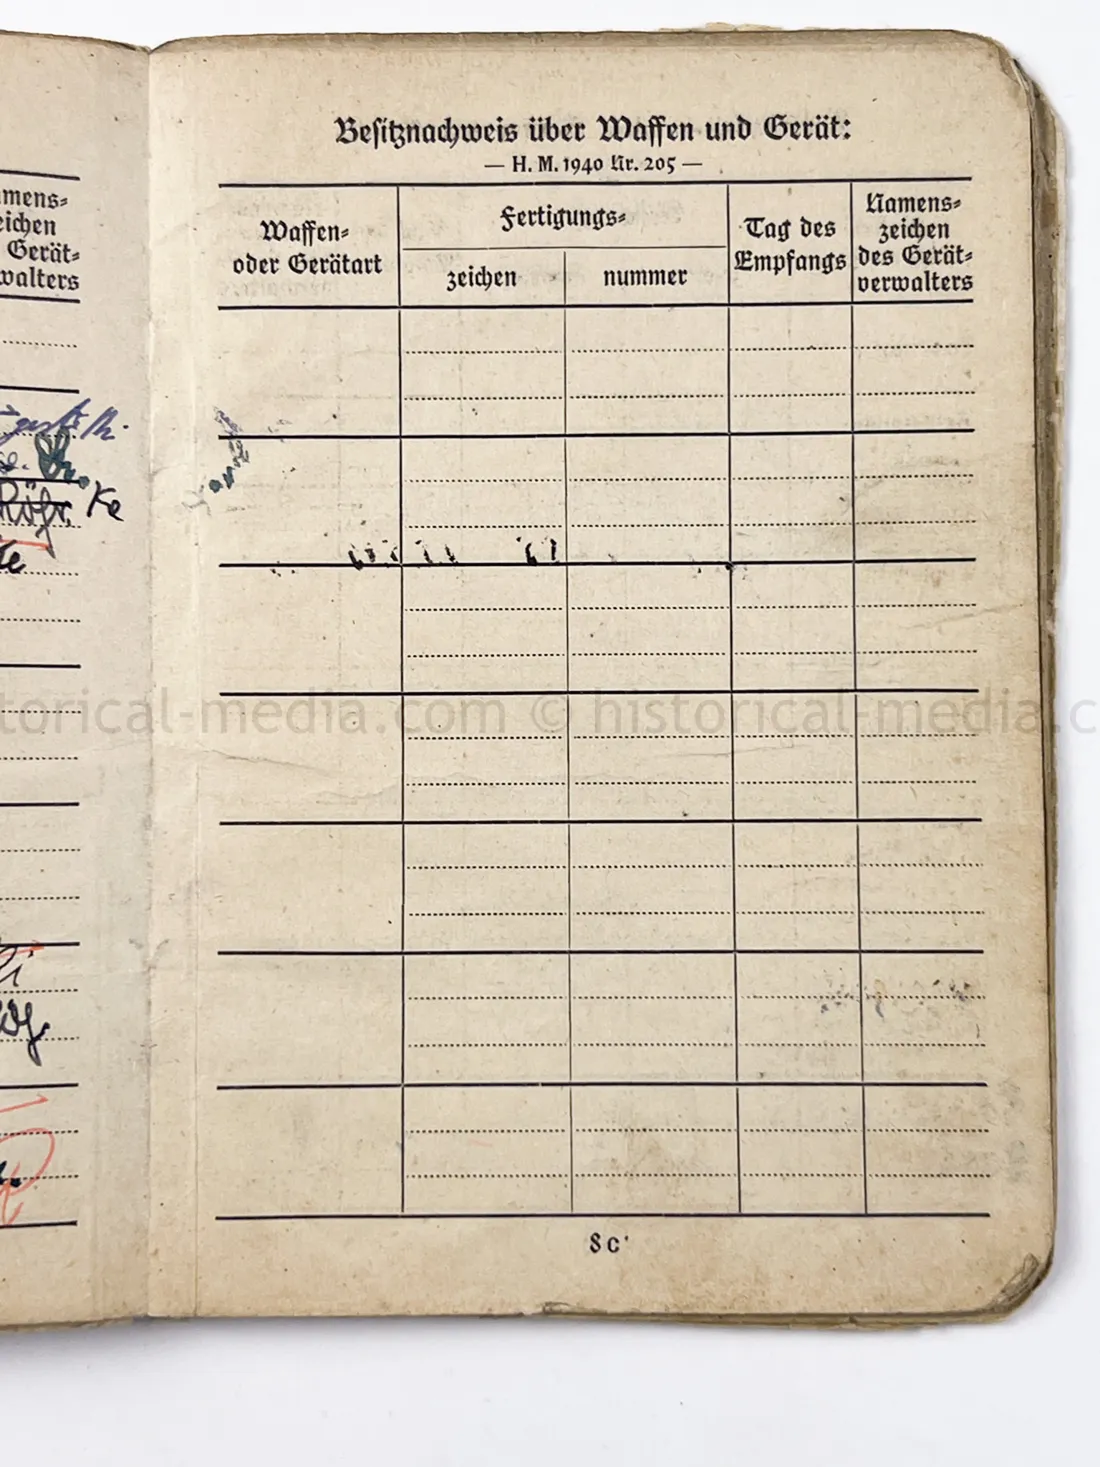 mens=
eichen
Gerät=
walters
Ke
Besitznachweis über Waffen und Gerät:
— H. M. 1940 Nr. 205 —
Waffen=
oder Gerätart
Fertigungs=
zeichen
nummer
Tag des
Empfangs
Namens=
zeichen
des Gerät=
verwalters
torical-media.com © historical-media.c
8 c